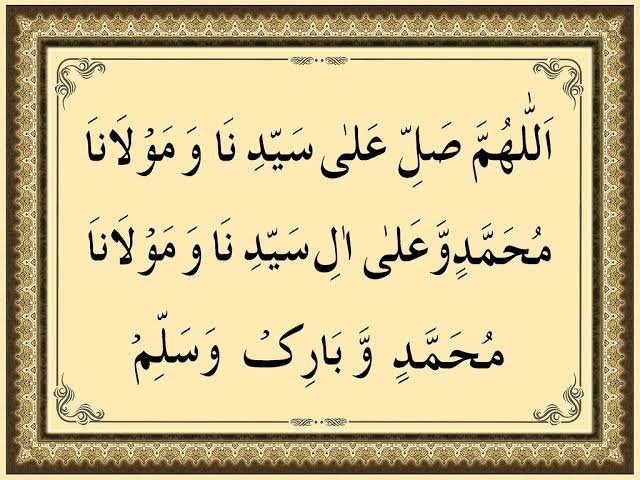 اَللّٰهُمَّ صَلِّ عَلٰى سَيِّدِ نَا وَ مَوْلَانَا
مُحَمَّدٍ وَّ عَلٰى اٰلِ سَيِّدِ نَا وَ مَوْلَانَا
مُحَمَّدٍ وَّ بَارِکْ وَسَلِّمْ